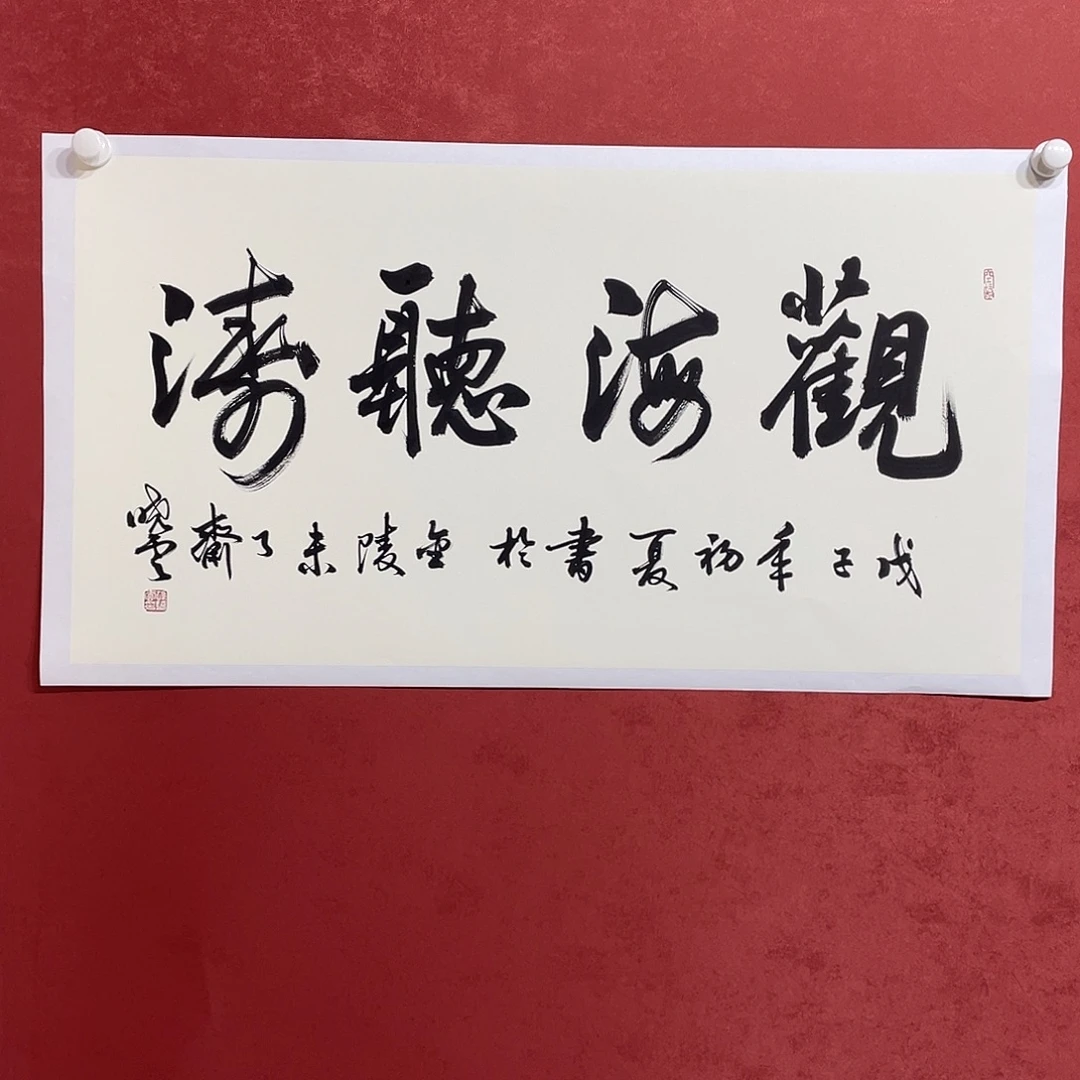 觀海聽濤
戊子年初夏書於金陵未了齋曉雲